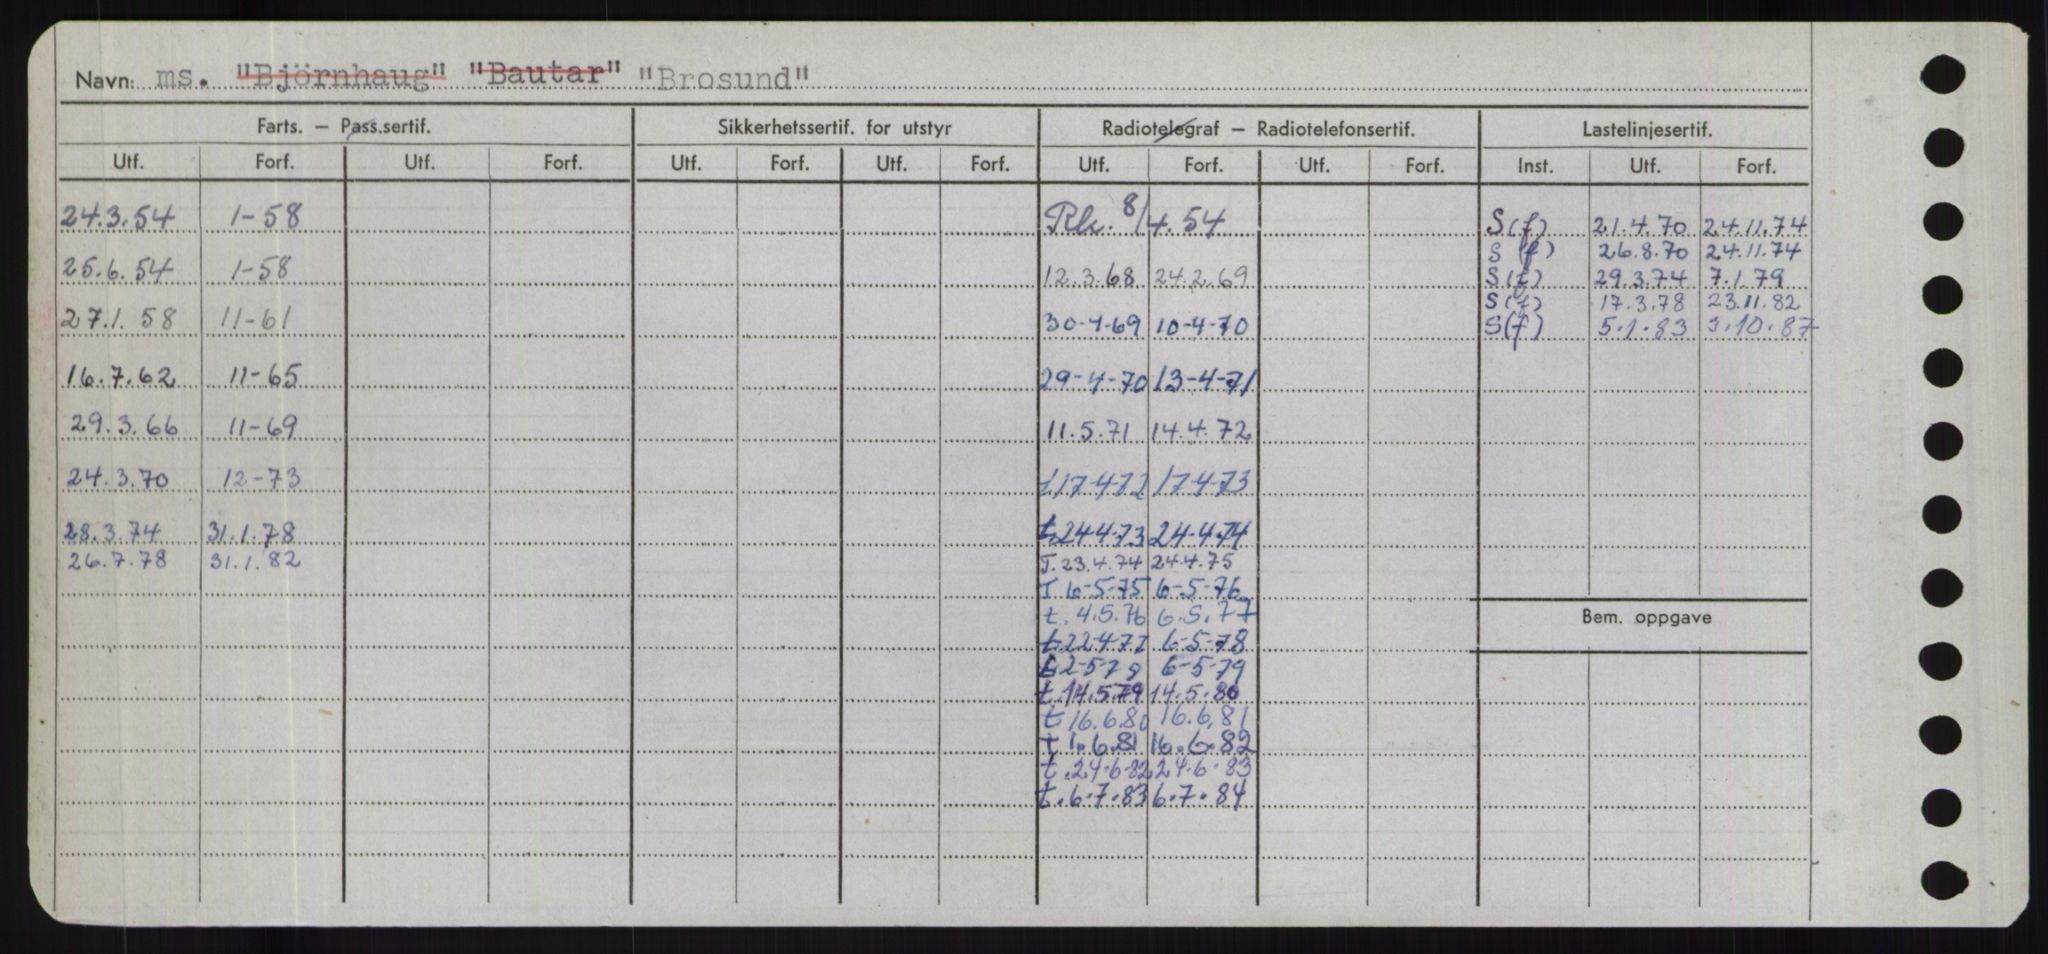 Navn: ms. "Björnhaug" "Bautar" "Brosund"
Farts. – Pass.sertif. Sikkerhetssertif. for utstyr Radiotelegraf – Radiotelefonsertif. Lastelinjesertif.
Utf. Forf. Utf. Forf. Utf. Forf. Utf. Forf. Utf. Forf. Utf. Forf. Inst. Utf. Forf.
24.3.54 1-58 Rk. 8/4.54 S(f) 21.4.70 24.11.74
S (f) 26.8.70 24.11.74
25.6.54 1-58 12.3.68 24.2.69 S(f) 29.3.74 7.1.79
S(f) 17.3.78 23.11.82
27.1.58 11-61 30-4-69 10-4-70 S(f) 5.1.83 3.10.87
16.7.62 11-65 29-4-70 13-4-71
29.3.66 11-69 11.5.71 14.4.72
24.3.70 12-73 t.17-4-72 17-4-73
28.3.74 31.1.78 t.24-4-73 24-4-74
26.7.78 31.1.82 T. 23.4.74 24.4.75
T 6-5-75 6-5-76
t. 4.5.76 6.5.77
Bem. oppgave
t 22-4-77 6-5-78
t 2-5-78 6-5-79
t. 14.5.79 14.5.80
t 16.6.80 16.6.81
t 1.6.81 16.6.82
t. 24.6.82 24.6.83
t. 6.7.83 6.7.84